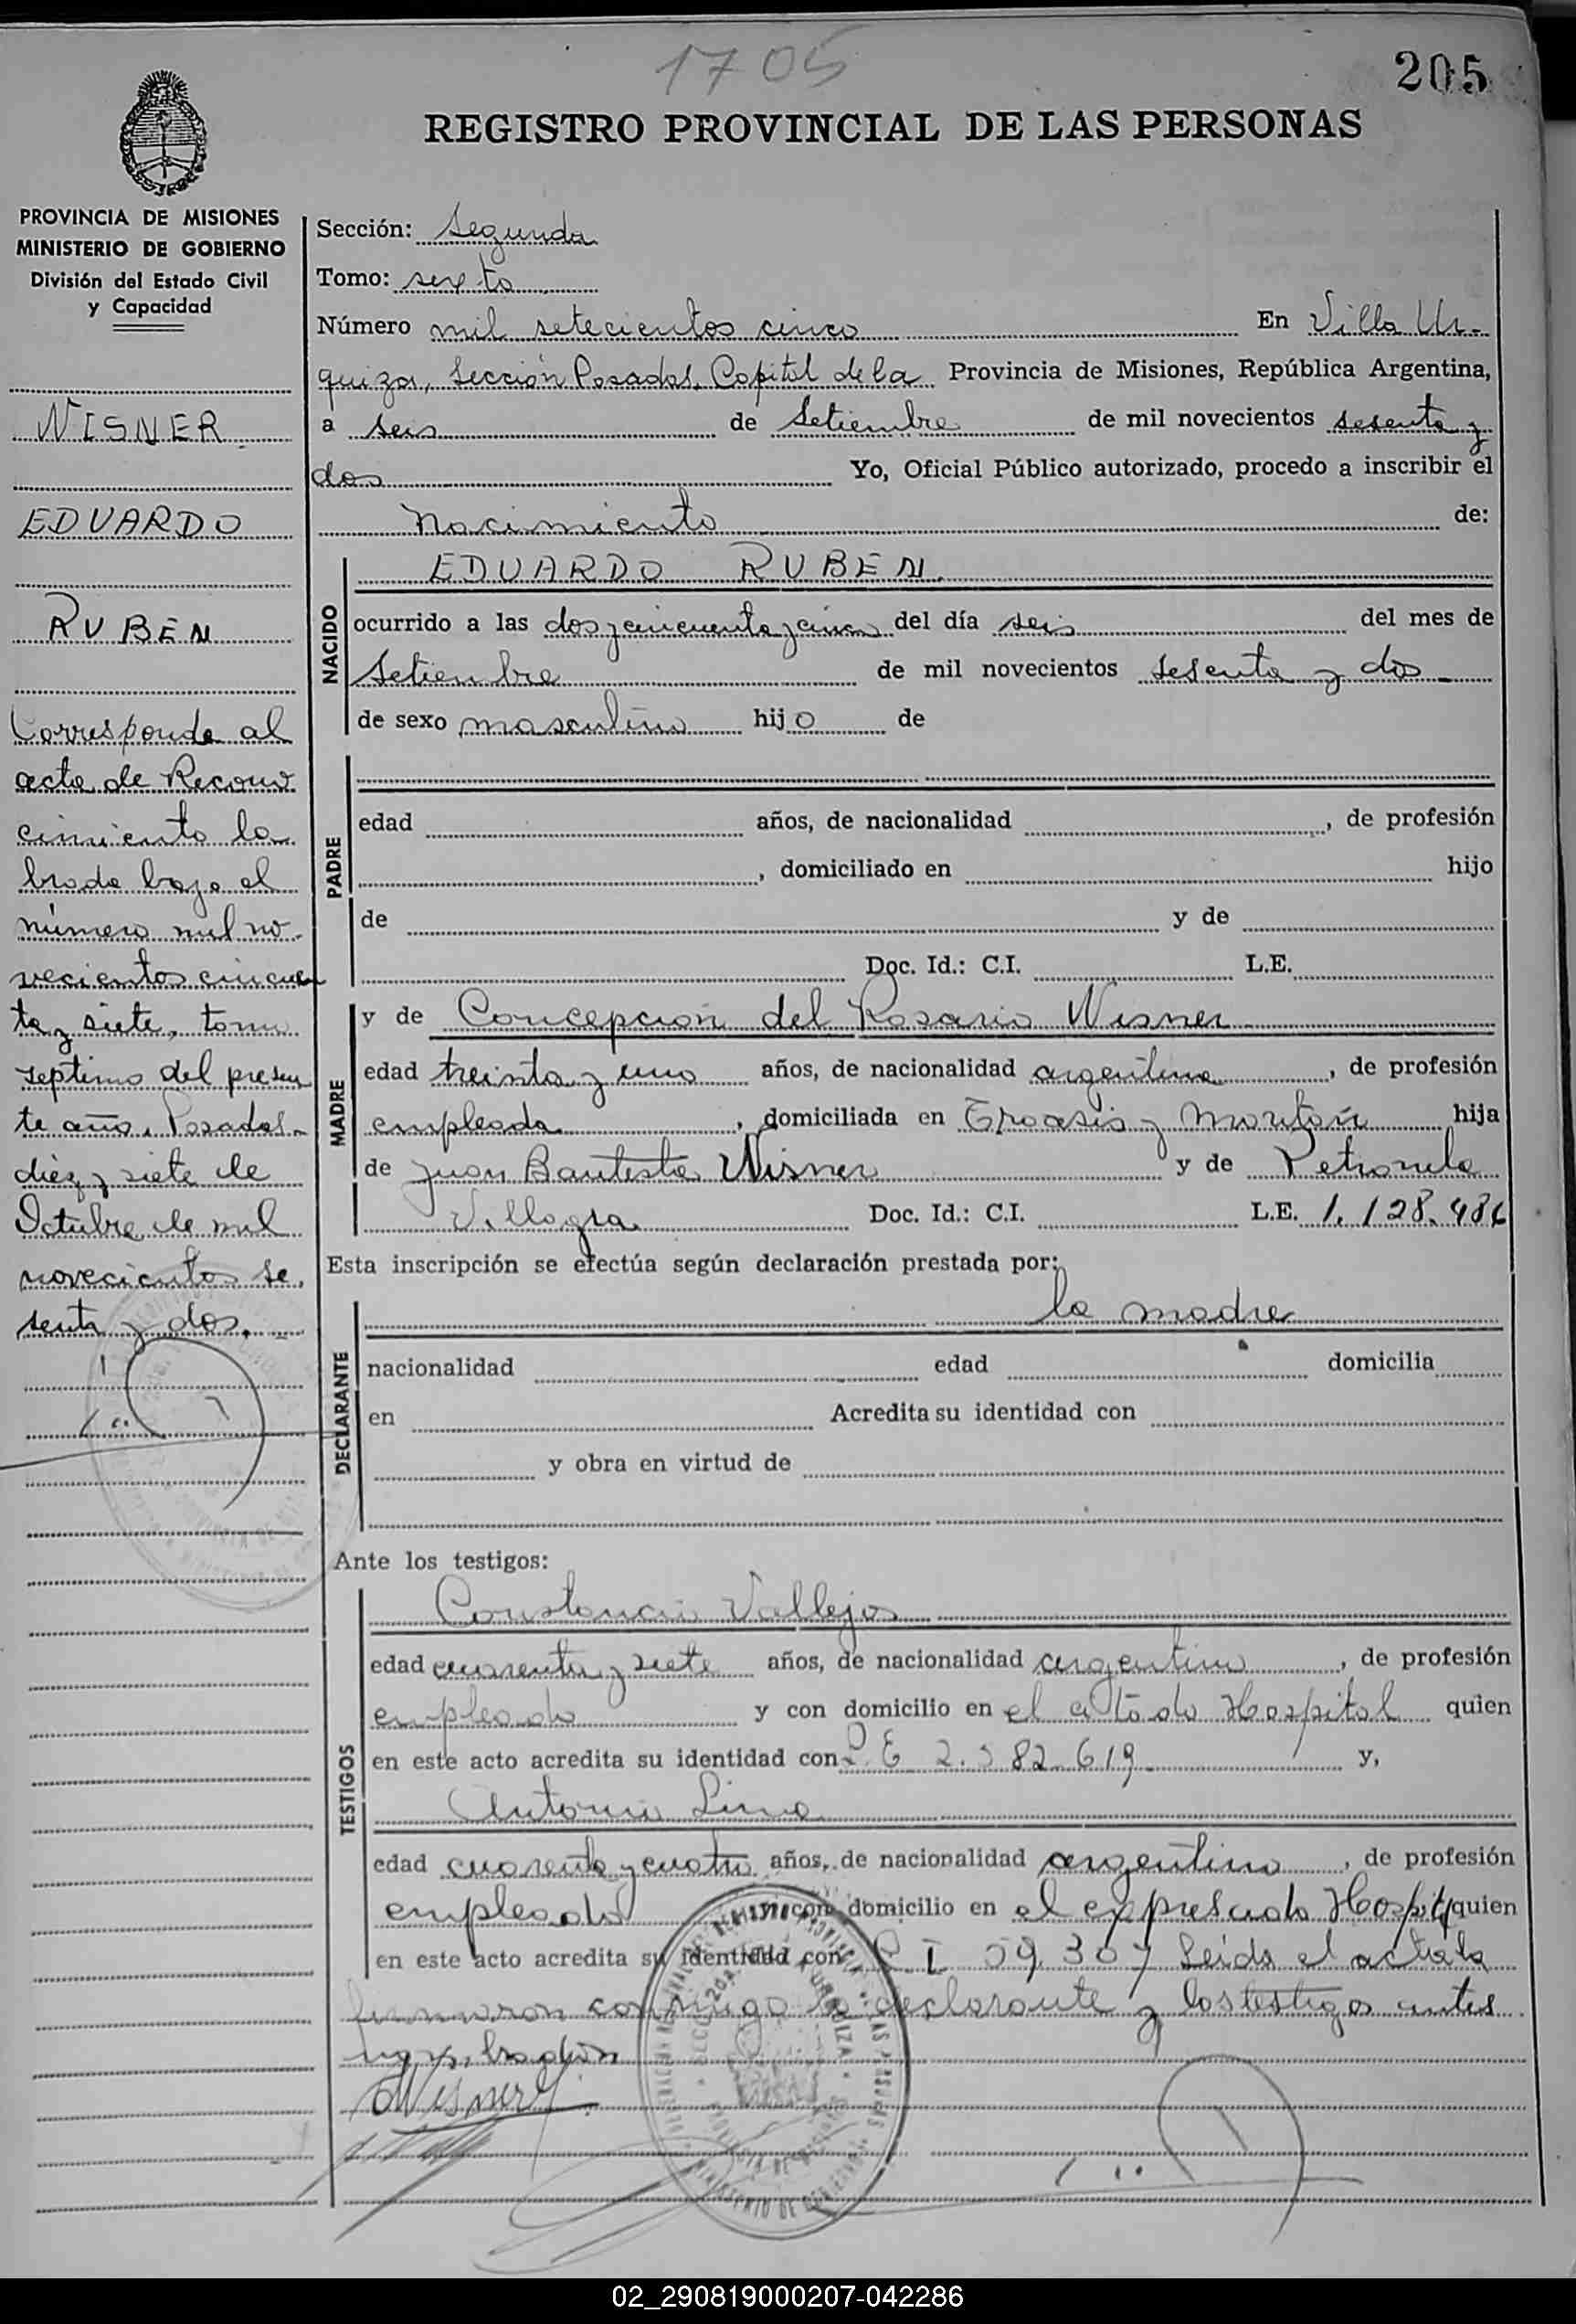 1705
205
REGISTRO PROVINCIAL DE LAS PERSONAS
PROVINCIA DE MISIONES
MINISTERIO DE GOBIERNO
División del Estado Civil
y Capacidad
WISNER
EDUARDO
RUBEN
Corresponde al
acta de Recono
cimiento la
brada bajo el
número mil no-
vecientos cincuen
ta y siete, tomo
septimo del presen
te año. Posadas-
diez y siete de
Octubre de mil
novecientos se
senta y dos.
Sección: Segunda
Tomo: sexto
Número mil setecientos cinco En Villa Ur-
quiza, Sección Posadas, Capital de la Provincia de Misiones, República Argentina,
a seis de Setiembre de mil novecientos sesenta y
dos Yo, Oficial Público autorizado, procedo a inscribir el
Nacimiento de:
NACIDO
EDUARDO RUBEN
ocurrido a las dos y cincuenta y cinco del día seis del mes de
Setiembre de mil novecientos sesenta y dos
de sexo masculino hijo de
PADRE
edad años, de nacionalidad , de profesión
, domiciliado en hijo
de y de
Doc. Id.: C.I. L.E.
MADRE
y de Concepcion del Rosario Wisner
edad treinta y uno años, de nacionalidad argentina , de profesión
empleada , domiciliada en y hija
de Juan Bautista Wisner y de Petronila
Villagra Doc. Id.: C.I. L.E. 1.128.486
Esta inscripción se efectúa según declaración prestada por:
la madre
DECLARANTE
nacionalidad edad domicilia
en Acredita su identidad con
y obra en virtud de
Ante los testigos:
TESTIGOS
Constancio Vallejos
edad cuarenta y siete años, de nacionalidad argentino , de profesión
empleado y con domicilio en el citado Hospital quien
en este acto acredita su identidad con L.E 2.582.619 y,
Antonio Lino
edad cuarenta y cuatro años, de nacionalidad argentino , de profesión
empleado y con domicilio en el expresado Hospital quien
en este acto acredita su identidad con C.I 59.307 Leida el acta la
firmaron conmigo la declarante y los testigos antes
Wisner
02_290819000207-042286